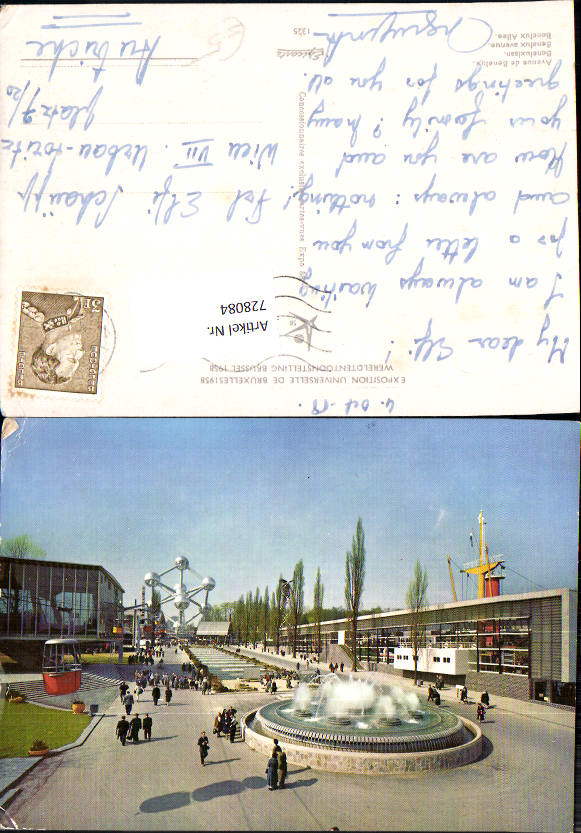 4. Oct - 58.
EXPOSITION UNIVERSELLE DE BRUXELLES 1958
WERELDTENTOONSTELLING BRUSSEL 1958
My dear Elfi!
I am always waiting
for a letter from you
and always: nothing!
How are you and
your family? Many
greetings for you all.
Avenue de Benelux.
Beneluxlaan.
Benelux avenue.
Benelux Allee.
1325
Artikel Nr.
728084
BELGIE
BELGIQUE
5Fr
Frl. Elfi
Wien VIII. Urban-Loritz
platz 7/20
Autriche